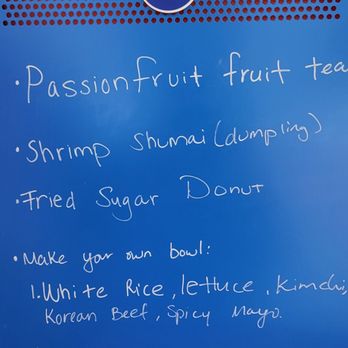 • Passionfruit fruit tea
• Shrimp Shumai (dumpling)
• Fried Sugar Donut
• Make your own bowl:
1. White Rice, lettuce, Kimchi,
Korean Beef, Spicy Mayo.